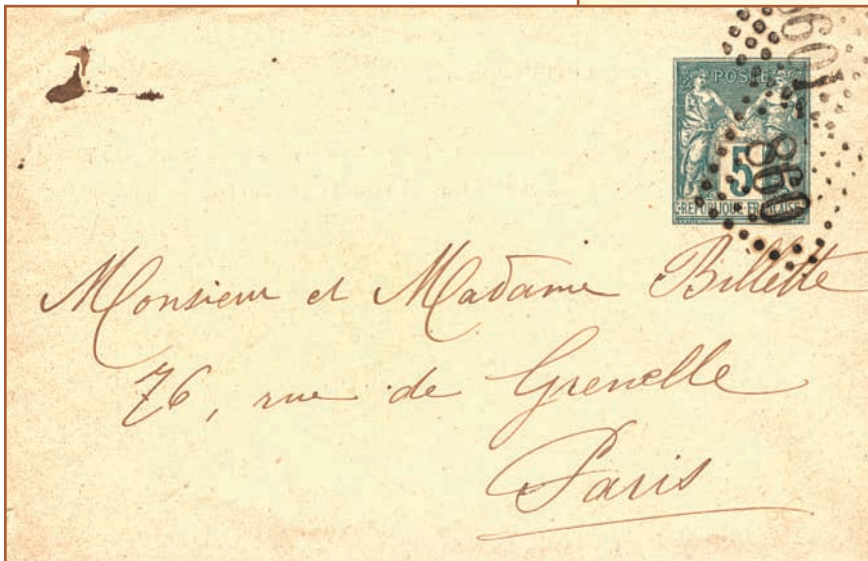 POSTE
5
REPUBLIQUE FRANÇAISE
860
Monsieur et Madame Billette
76, rue de Grenelle
Paris